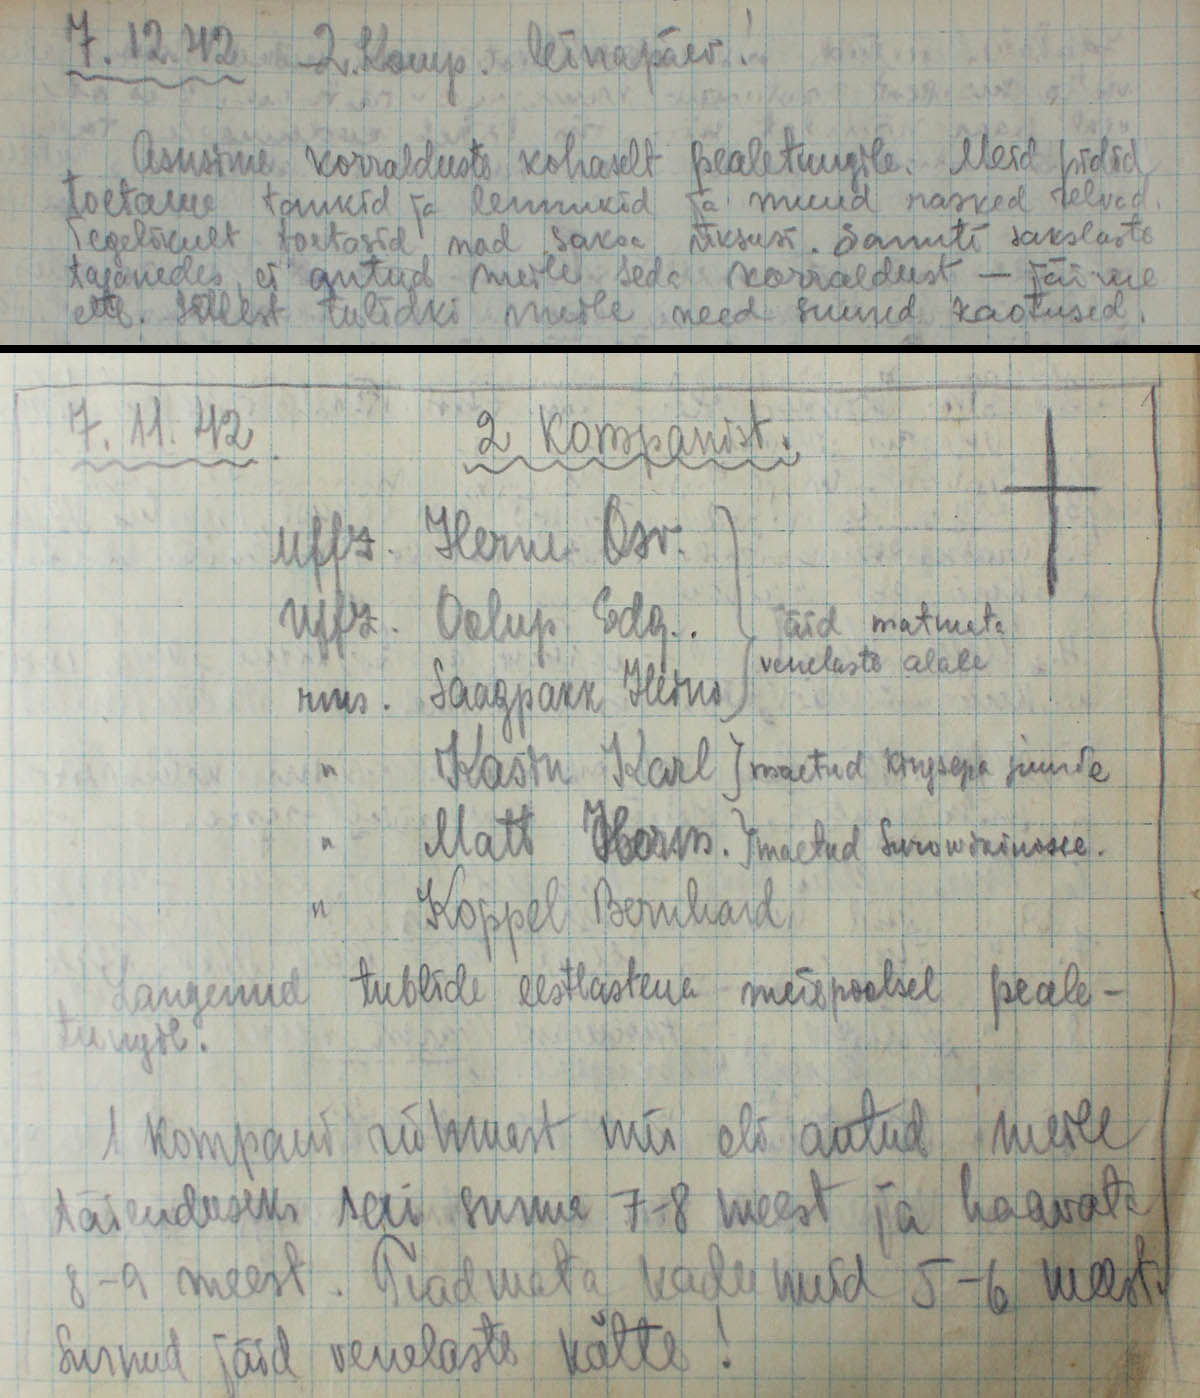 7.12.42 2. Komp. leinapäev!
Asusime korralduste kohaselt pealetungile. Meid pidid
toetama tankid ja lennukid ja muud rasked relvad.
Tegelikult toetasid nad saksa üksusi. Samuti sakslaste
taganedes, ei antud meile seda korraldust — jäime
ette. Sellest tulidki meile need suured kaotused.
7.11.42. 2 Kompaniist.
Uffz. Herne Osv.
Uffz. Oolup Edg.. jäid matmata
venelaste alale
rms. Saagpakk Heino
" Kasin Karl } maetud Kingsepa juurde
" Matt Herm. } maetud Surowikinosse.
" Koppel Bernhard
Langenud tublide eestlastena meiepoolsel peale-
tungil.
1 kompanii rühmast mis oli antud meile
täienduseks sai surma 7-8 meest ja haavata
8-9 meest. Teadmata kadunuid 5-6 meest.
Surnud jäid venelaste kätte!